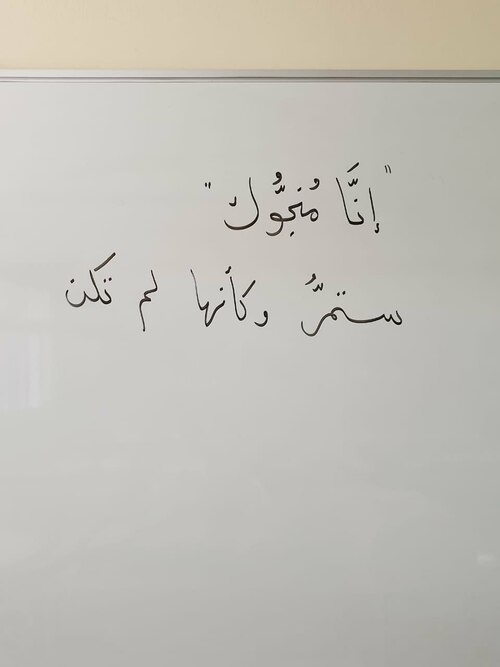 "إنَّا مُنجُّوك"
ستمرُّ وكأنها لم تكن